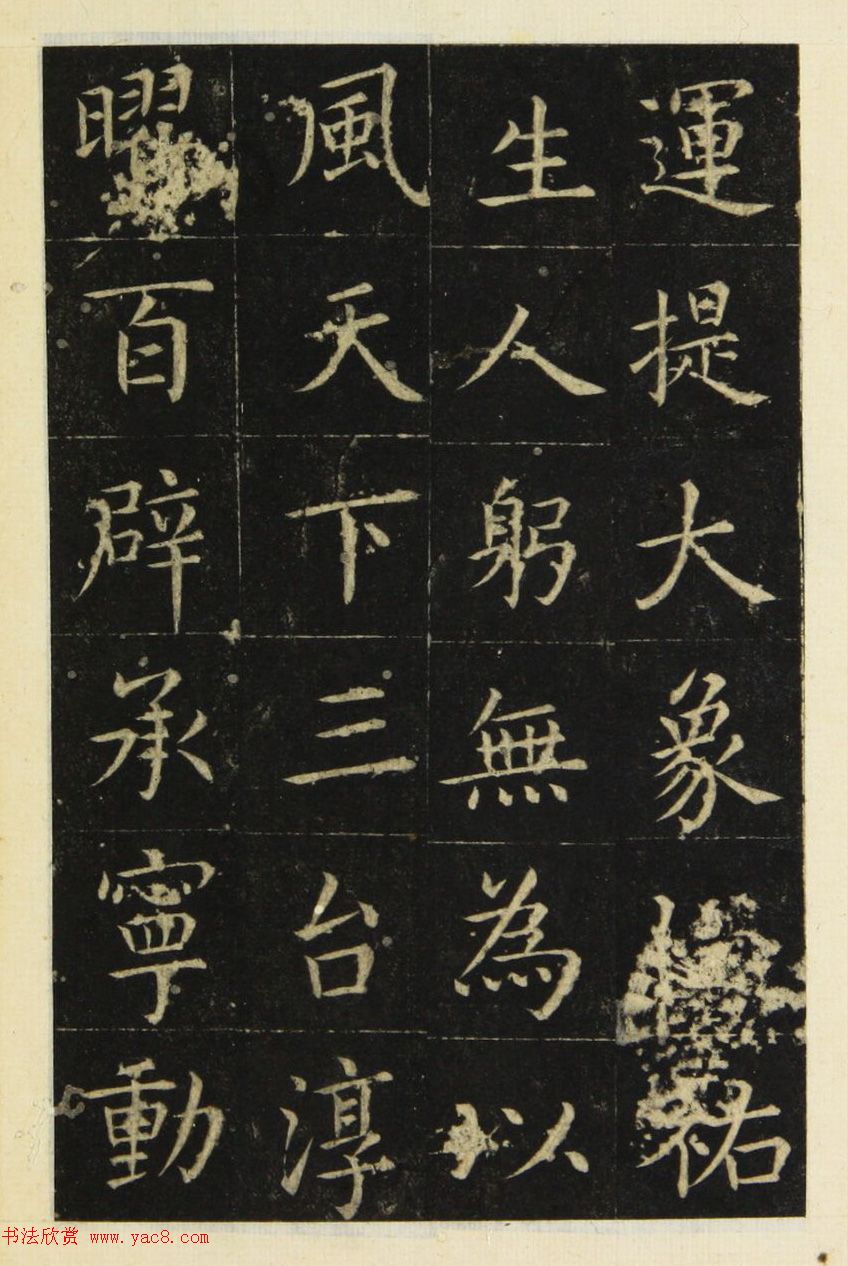 運提大象祐
生人躬無為以
風天下三台淳
曜百辟承寧動
书法欣赏 www.yac8.com